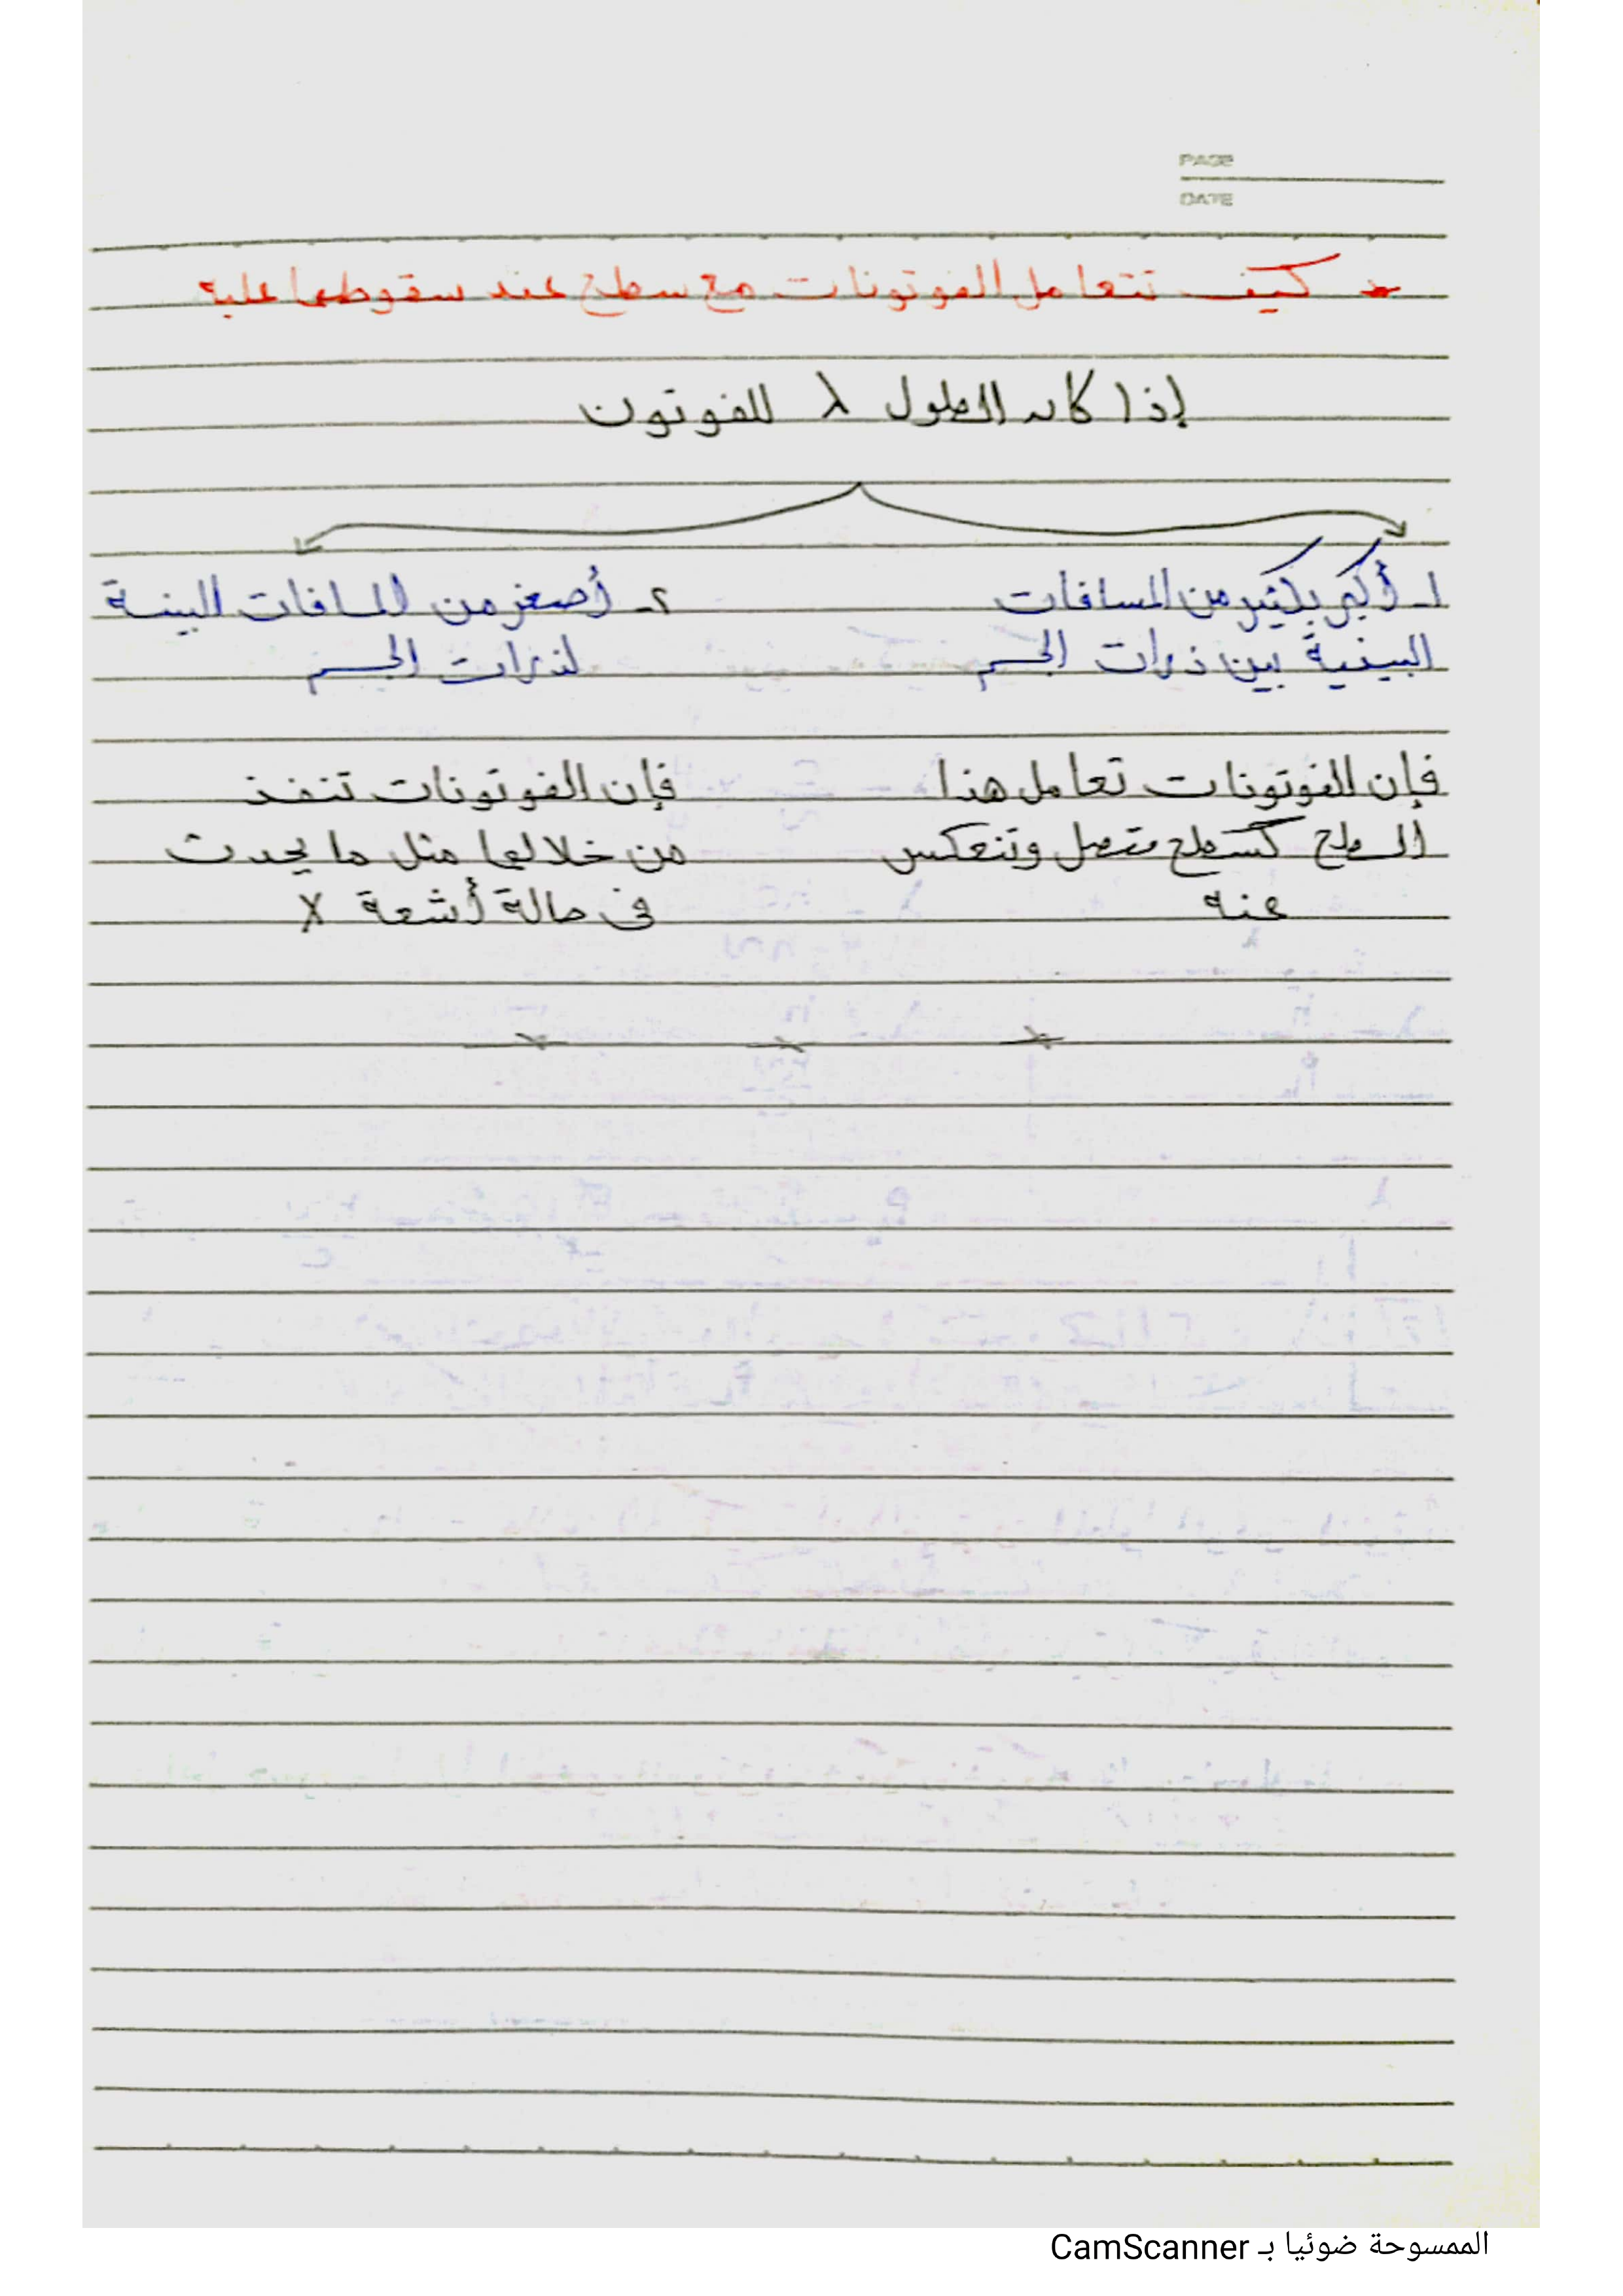 PAGE
DATE
* كيف تتعامل الفوتونات مع سطح عند سقوطها عليه
إذا كان الطول λ للفوتون
١- أكبر بكثير من المسافات
البينية بين ذرات الجسم
فإن الفوتونات تعامل هذا
السطح كسطح متصل وتنعكس
عنه
٢- أصغر من المسافات البينية
لذرات الجسم
فإن الفوتونات تنفذ
من خلالها مثل ما يحدث
فى حالة أشعة X
الممسوحة ضوئيا بـ CamScanner